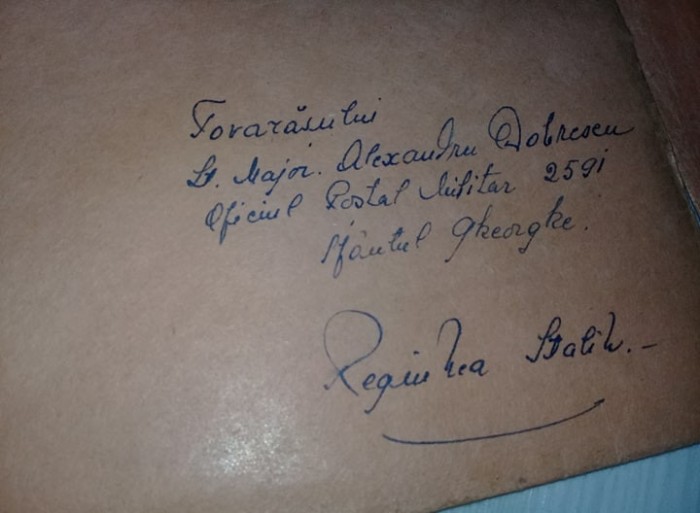 Tovarăsului
Lt. Major. Alexandru Dobrescu
Oficiul Postal Militar 2591
Sfântul Gheorghe.
Regiunea Stalin. –